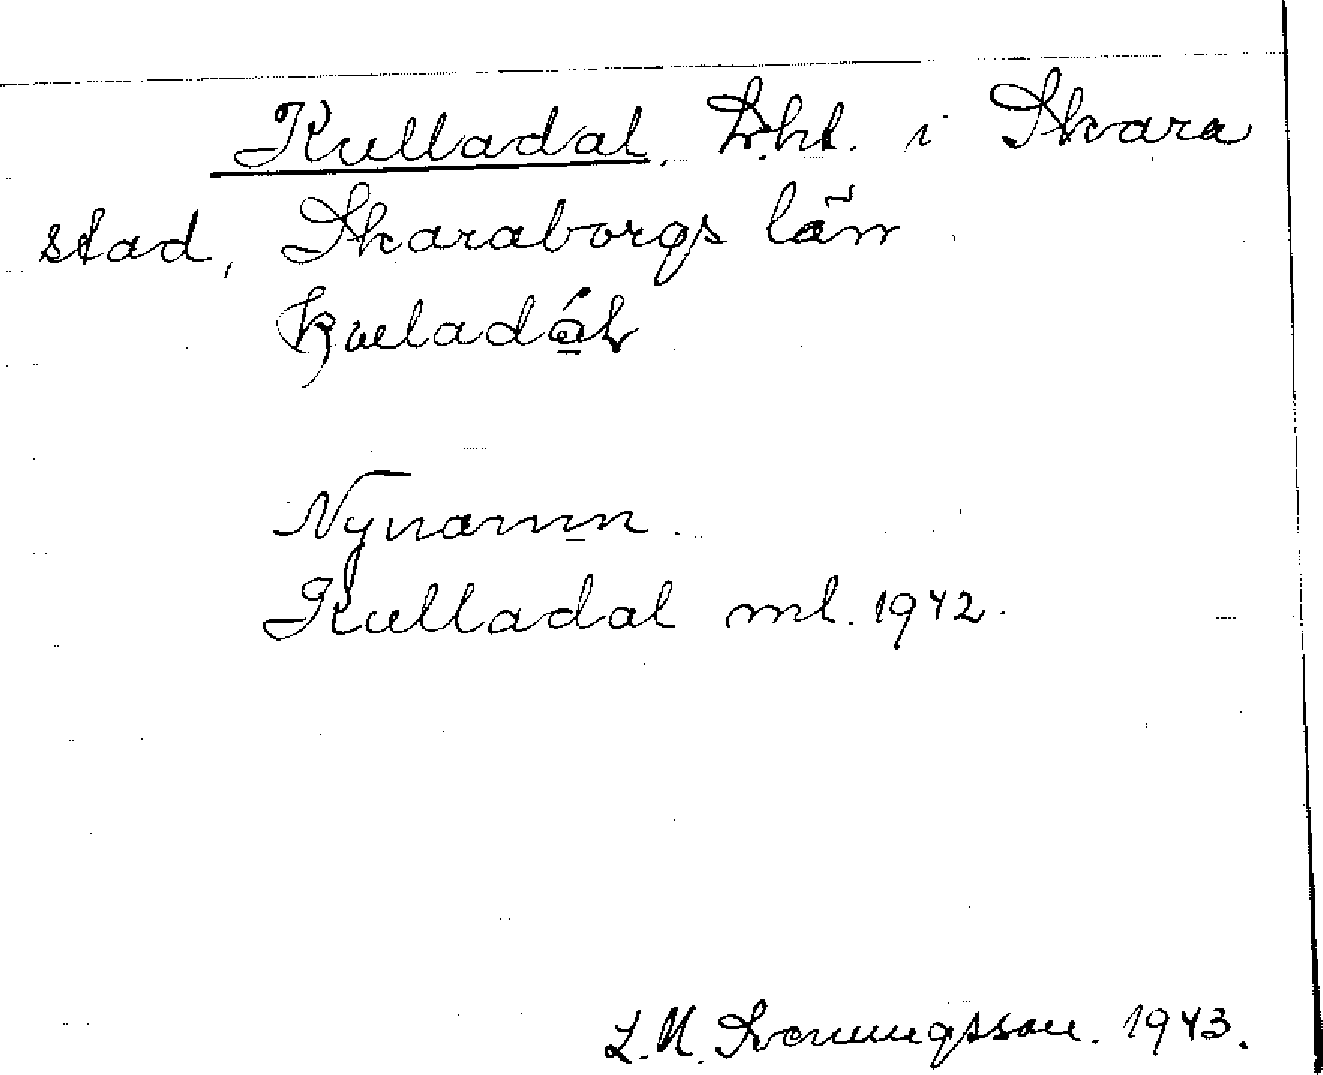 Kulladal. Lht. i Skara
stad, Skaraborgs län
kueladáL
Nynamn.
Kulladal ml. 1942.
L.M. Svenungsson. 1943.